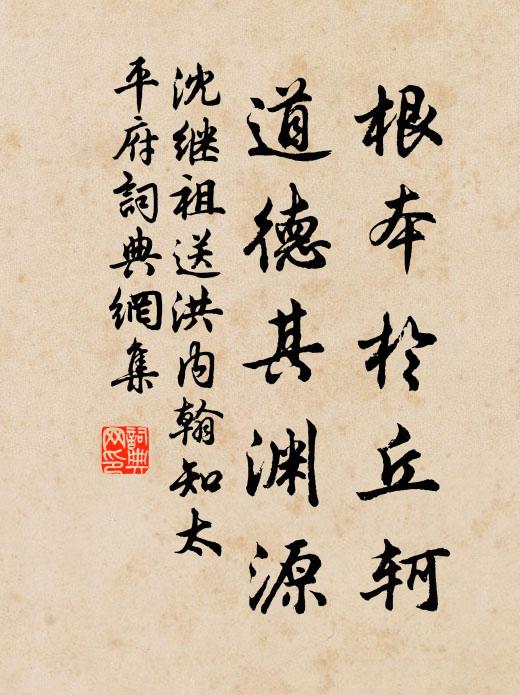 根本於丘轲
道德其渊源
沈继祖送洪内翰知太
平府詞典網集
詞典
网印